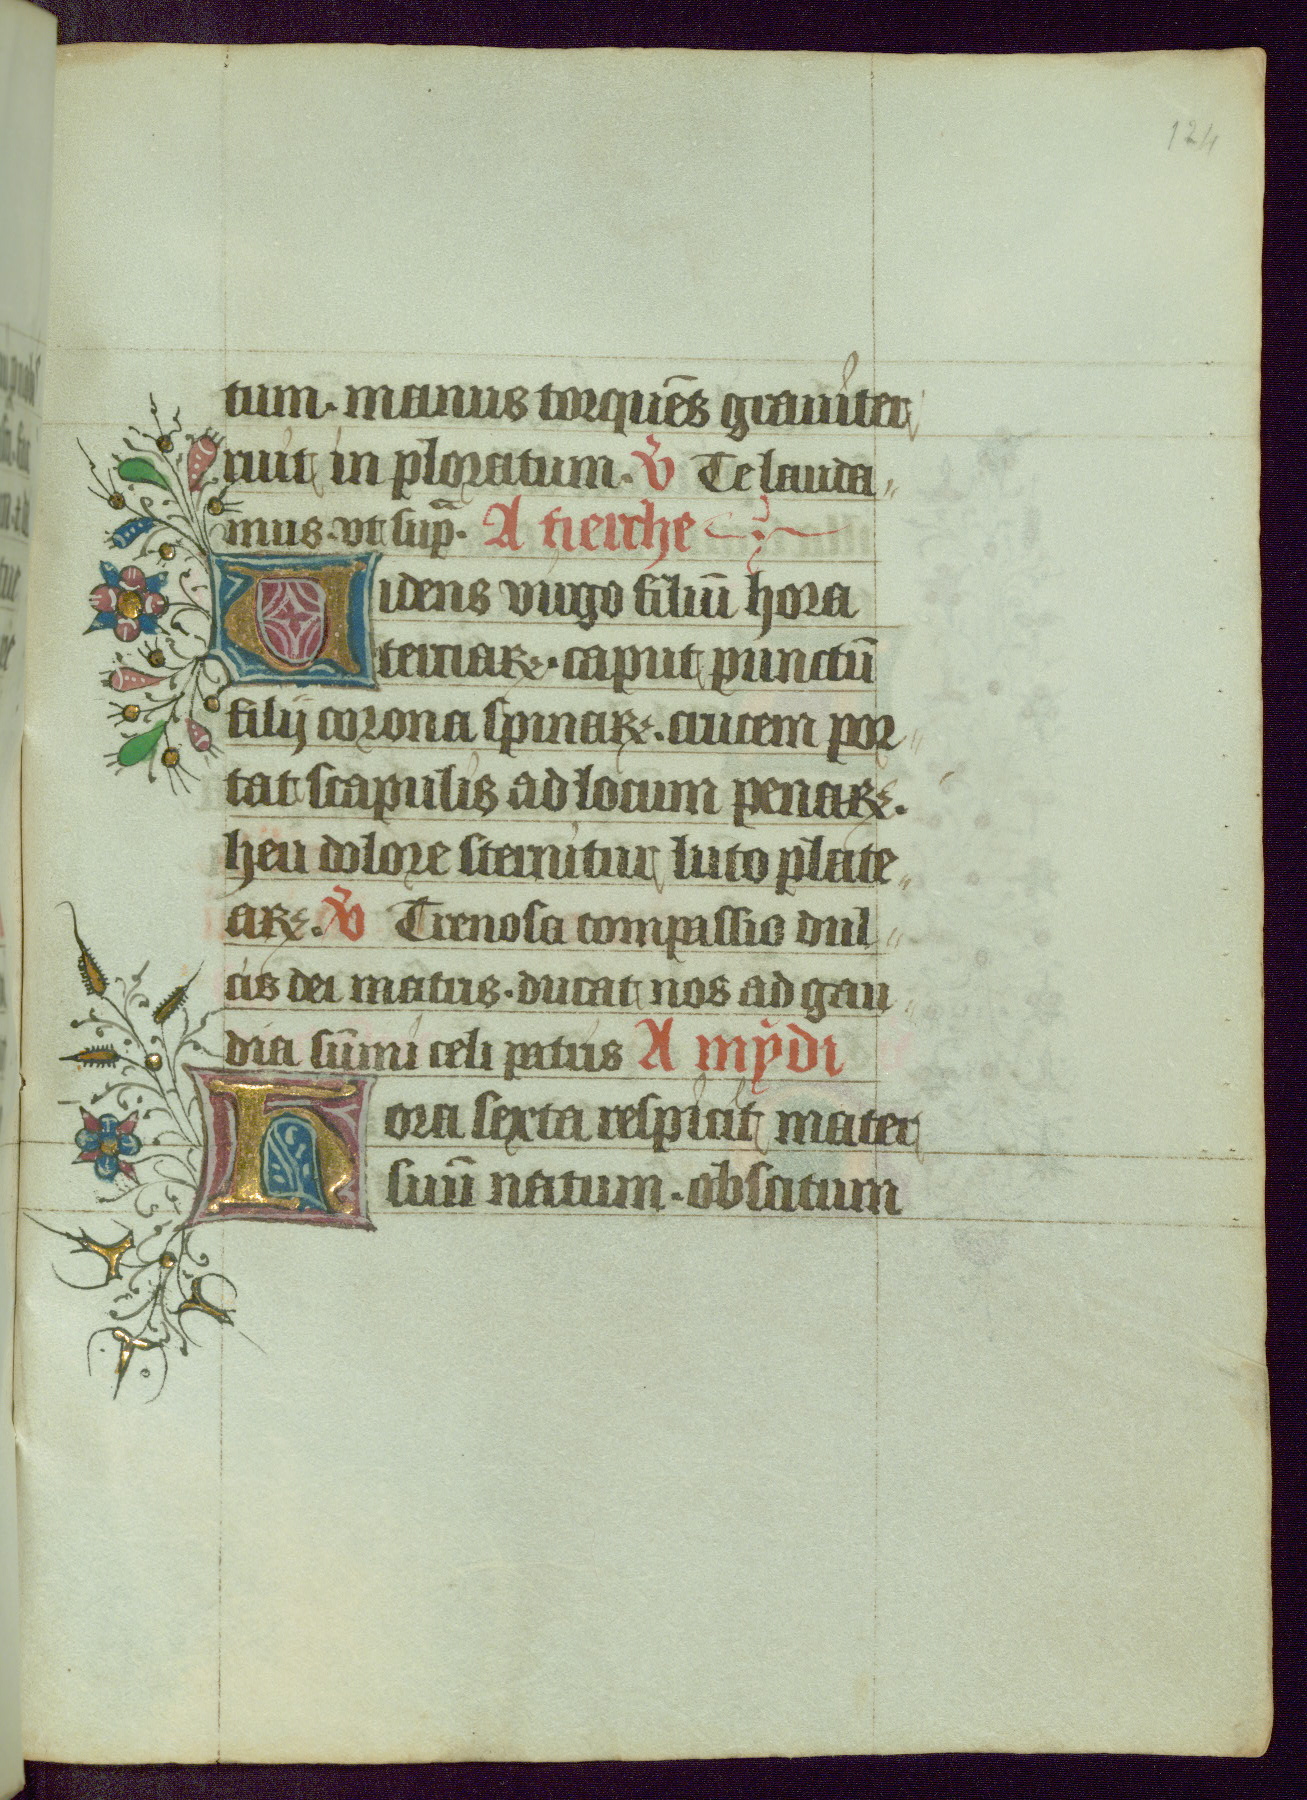 124
tum. manus torquēs grauiter
ruit in ploratum. v̄ Te lauda„
mus. vt sup̄. A tierche
Uidens virgo filiū hora
terciaꝝ. caput punctū
filij corona spinaꝝ. crucem por„
tat scapulis ad locum penaꝝ.
heu dolore sternitur luto plate„
aꝝ. v̄ Trenosa compassio dul„
cis dei matris. ducat nos ad gau„
dia sūmi celi patris A mydi
Hora sexta respicit mater
suū natum. obscatum